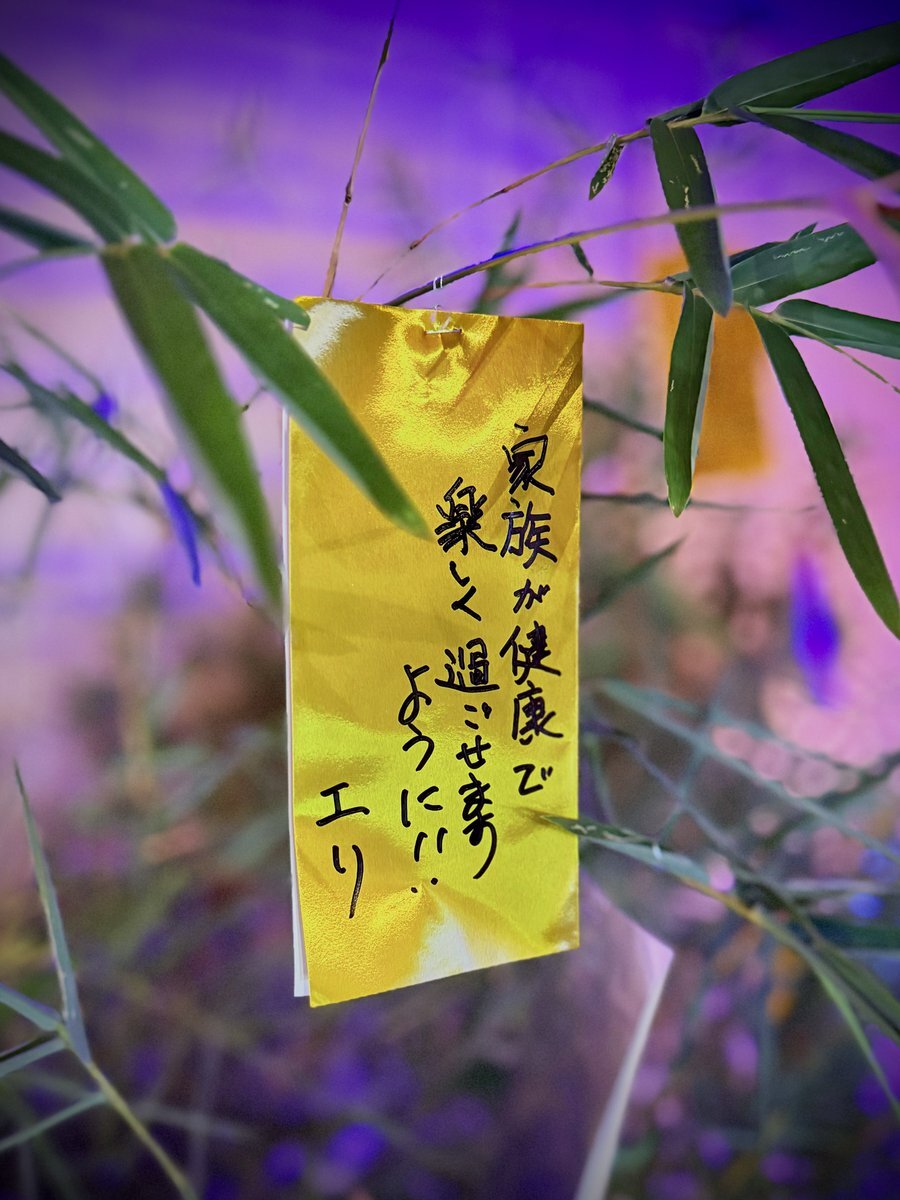 家族が健康で
楽しく過ごせます
ように!!
エリ